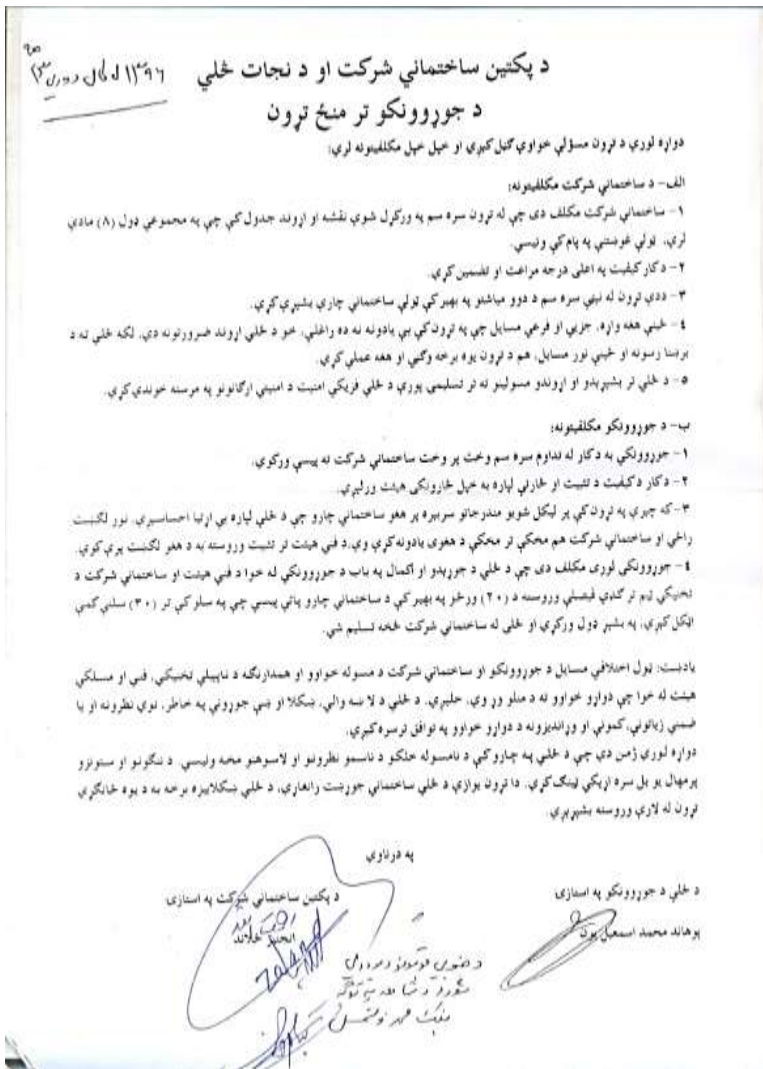 ۱۳۹۶ ل کال د وري ۲۵
د پکتین ساختماني شرکت او د نجات څلي
د جوړوونکو تر منځ تړون
دواړه لوري د تړون مسؤلې خواوې ګڼل کېږي او خپل خپل مکلفیتونه لري:
الف- د ساختماني شرکت مکلفیتونه:
۱- ساختماني شرکت مکلف دی چې له تړون سره سم په ورکړل شوې نقشه او اړوند جدول کې چې په مجموعي ډول (۸) مادې
لري، ټولې غوښتنې په پام کې ونیسي.
۲- د کار کیفیت په اعلی درجه مراعت او تضمین کړي.
۳- ددې تړون له نېټې سره سم د دوو میاشتو په بهیر کې ټولې ساختماني چارې بشپړې کړي.
٤- ځینې هغه واړه، جزیي او فرعي مسایل چې په تړون کې یې یادونه نه ده راغلې، خو د څلي اړوند ضرورتونه دي، لکه څلي ته د
برښنا رسونه او ځینې نور مسایل، هم د تړون یوه برخه وګڼي او هغه عملي کړي.
۵- د څلي تر بشپړېدو او اړوندو مسولینو ته تر تسلیمۍ پورې د څلي فزیکي امنیت د امنیتي ارګانونو په مرسته خوندي کړي.
ب- د جوړوونکو مکلفیتونه:
۱- جوړوونکي به د کار له تداوم سره سم وخت پر وخت ساختماني شرکت ته پیسې ورکوي.
۲- د کار د کیفیت د تثبیت او څارنې لپاره به خپل څارونکی هیئت ورلېږي.
۳- که چېرې په تړون کې پر لیکل شویو مندرجاتو سربېره پر هغو ساختماني چارو چې د څلي لپاره یې اړتیا احساسېږي، نور لګښت
راځي او ساختماني شرکت هم مخکې تر مخکې د هغوی یادونه کړې وي، د فني هیئت تر تثبیت وروسته به د هغو لګښت پرې کوي.
٤- جوړوونکی لوری مکلف دی چې د څلي د جوړېدو او اکمال په باب د جوړوونکي له خوا د فني هیئت او ساختماني شرکت د
تخنیکي ټیم تر ګډې فیصلې وروسته د (۲۰) ورځو په بهیر کې د ساختماني چارو پاتې پیسې چې په سلو کې تر (۳۰) سلنې کمې
اټکل کېږي، په بشپړ ډول ورکړي او څلی له ساختماني شرکت څخه تسلیم شي.
یادښت: ټول اختلافي مسایل د جوړوونکو او ساختماني شرکت د مسوله خواوو او همدارنګه د ناپېیلي تخنیکي، فني او مسلکي
هیئت له خوا چې دواړو خواوو ته د منلو وړ وي، حلېږي. د څلي د لا ښه والي، ښکلا او ښې جوړونې په خاطر، نوي نظرونه او یا
ضمني زیاتونې، کمونې او وړاندیزونه د دواړو خواوو په توافق ترسره کېږي.
دواړه لوري ژمن دي چې د څلي په چارو کې د نامسوله خلکو د ناسمو نظرونو او لاسوهنو مخه ونیسي د ننګونو او ستونزو
پرمهال یو بل سره اړیکې ټینګ کړي. دا تړون یوازې د څلي ساختماني جوړښت رانغاړي، د څلي ښکلاییزه برخه به د یوه ځانګړي
تړون له لارې وروسته بشپړېږي.
په درناوي
د څلي د جوړوونکو په استازۍ
د پکتین ساختماني شرکت په استازۍ
پوهاند محمد اسمعیل یون
انجنیر ځلاند